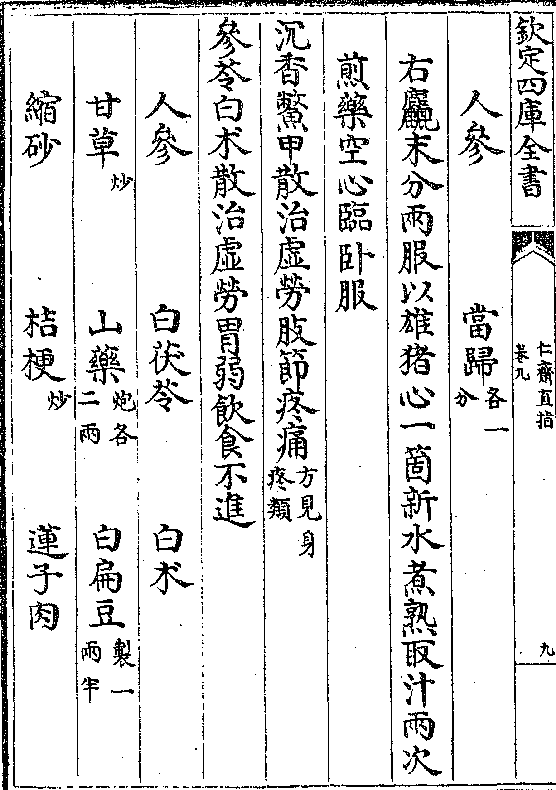 欽定四庫全書
仁齋直指
卷九
九
人參 當歸各一分
右麤末分兩服以雄猪心一箇新水煮熟取汁兩次
煎藥空心臨卧服
沉香鱉甲散治虛勞肢節疼痛方見身疼類
參苓白术散治虛勞胃弱飲食不進
人參 白茯苓 白术
甘草炒 山藥炮各二兩 白扁豆製一兩半
縮砂 桔梗炒 蓮子肉